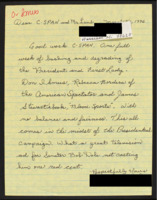 Dear C-SPAN and Mr. Lamb,
Good work C-SPAN. One full
week of bashing and degrading of
the President and First Lady.
Don Imus, Rebecca Borders of
the American Spectator and James
Stewart's book, "Blood Sport". With
no balance and fairness. This all
comes in the midst of the Presidential
Campaign. What a great
not for Senator Bob Dole not costing
him one red cent.
Respectfully Yours